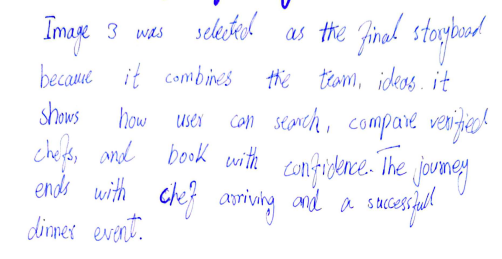 Image 3 was selected as the final storyboad
because it combines the team, ideas. it
shows how user can search, compare verified
chefs, and book with confidence. The journey
ends with chef arriving and a successfull
dinner event.